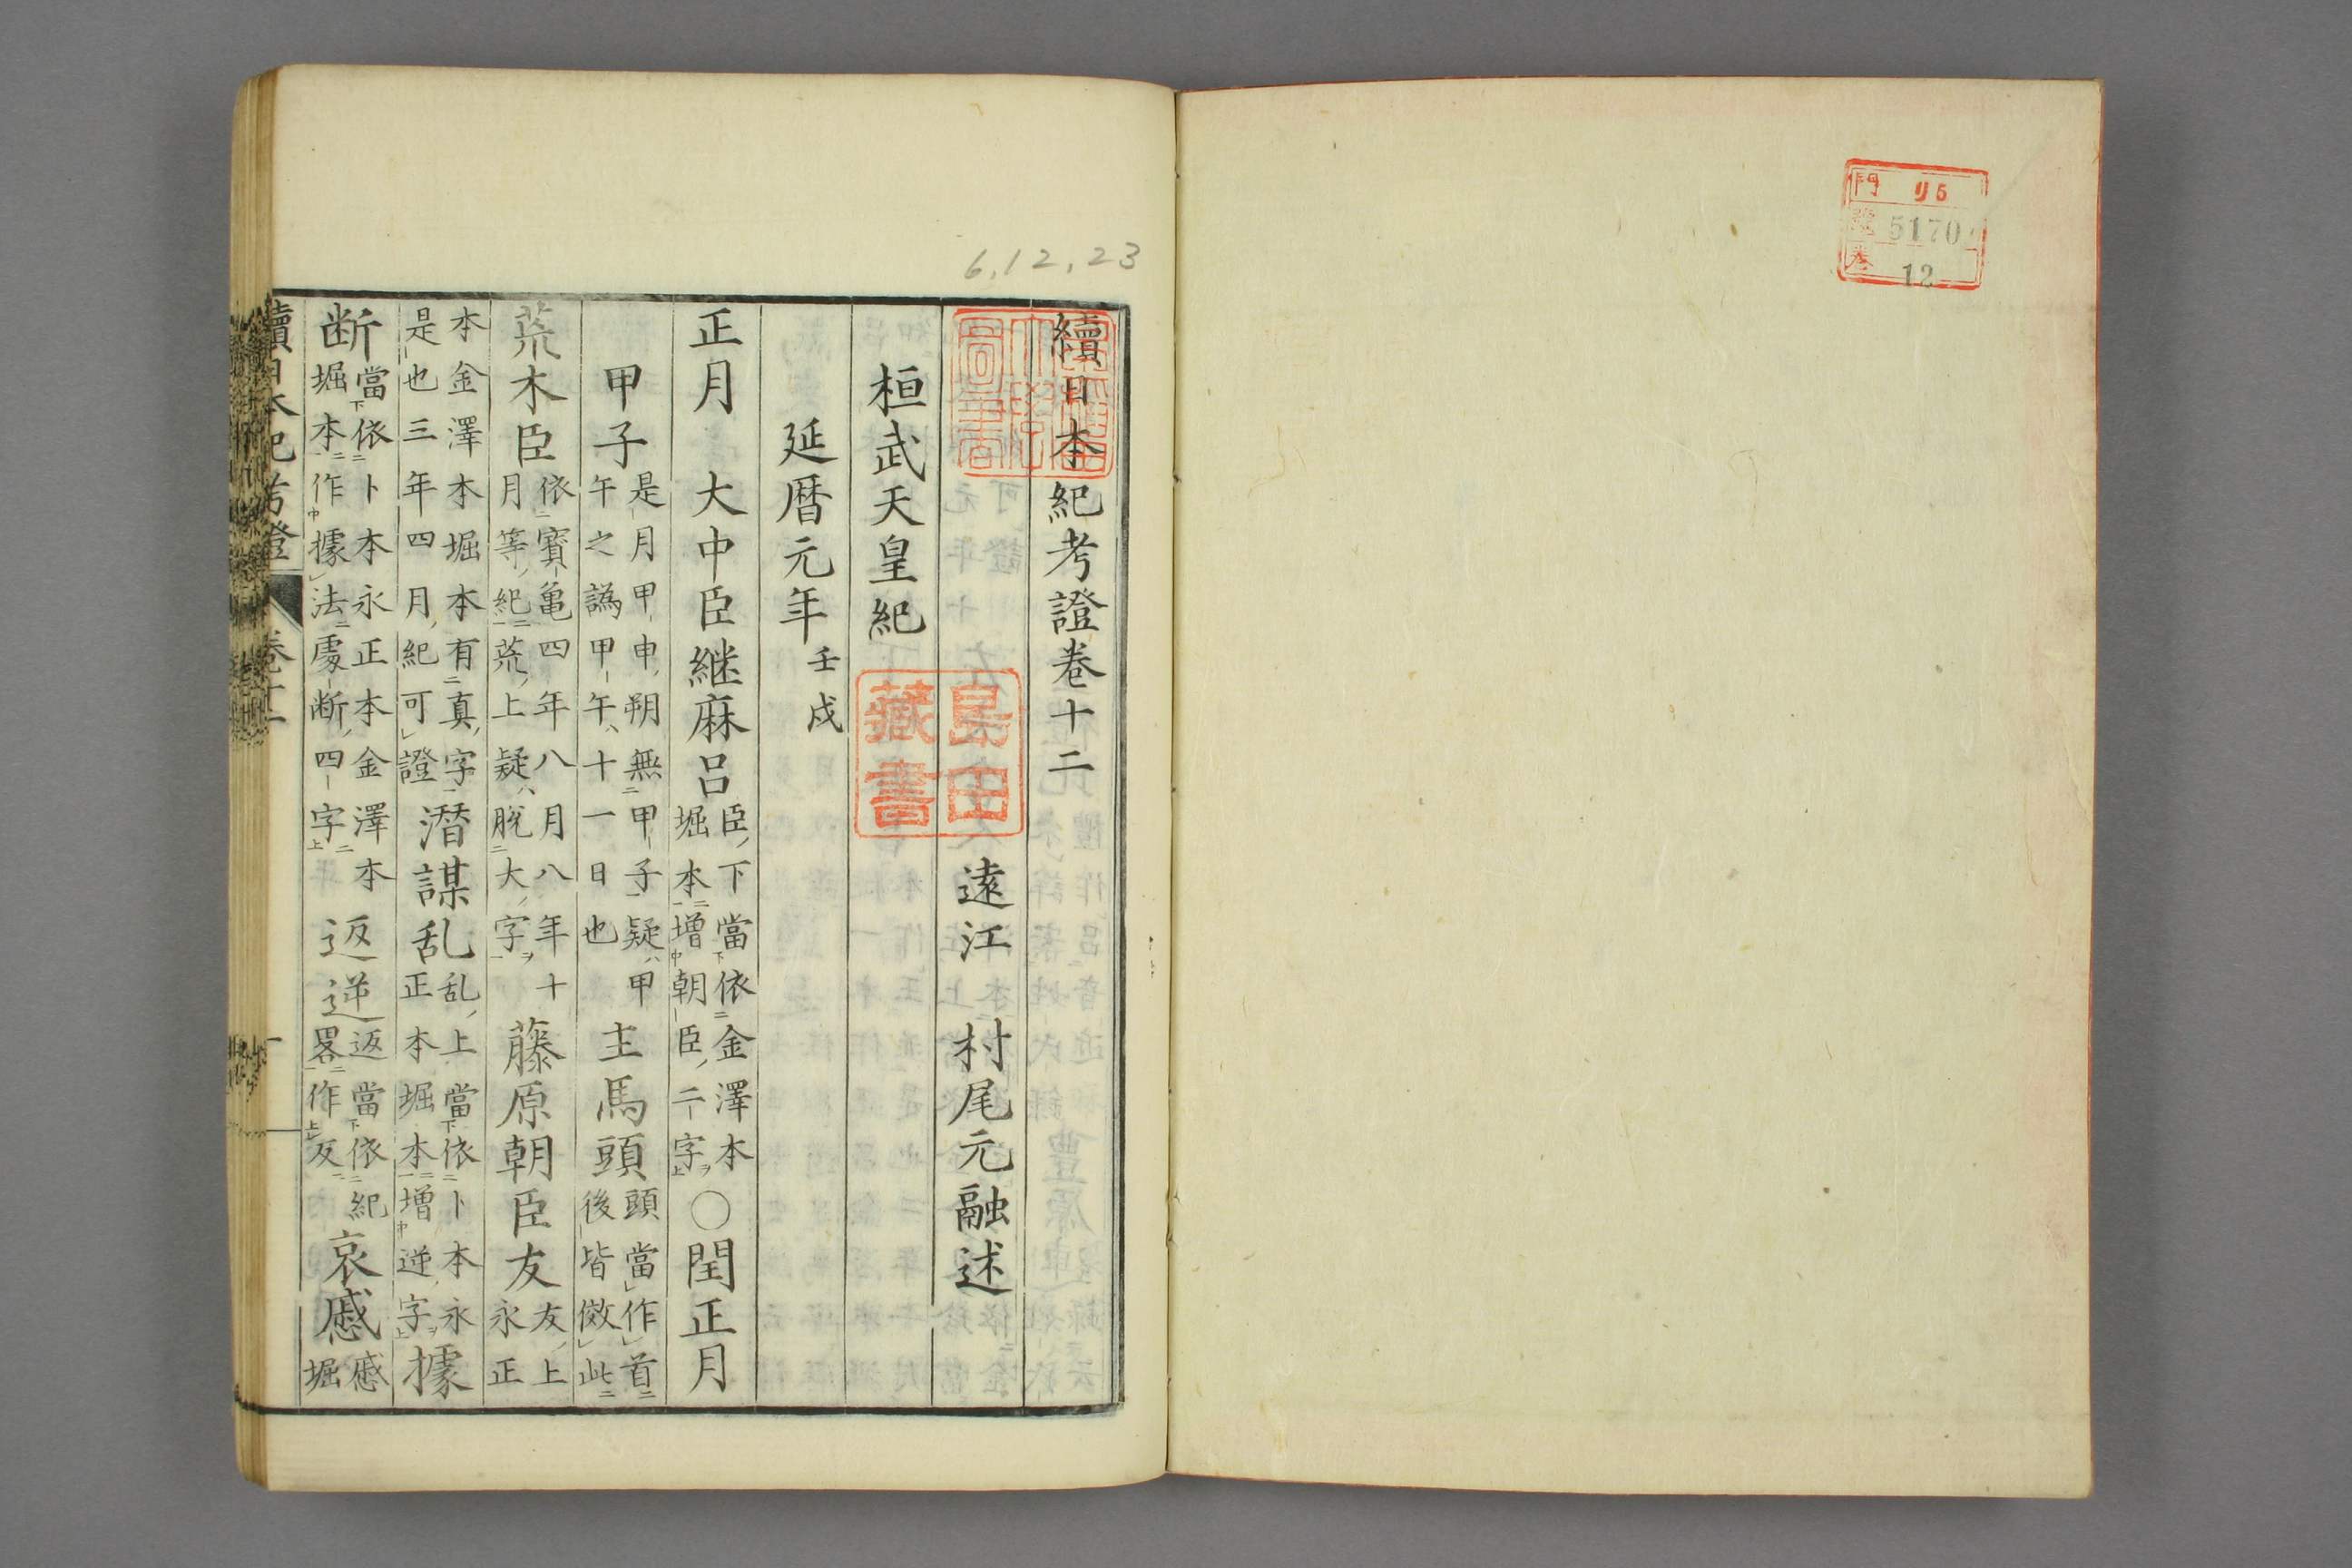 門 リ5
號 5170
卷 12
6,12,23
續日本紀考證卷十二
遠江 村尾元融述
桓武天皇紀
延曆元年壬戌
正月 大中臣継麻呂臣、下當依金澤本堀本増朝臣、二字ヲ〇閏正月
甲子是月甲申朔無甲子疑ハ甲午之譌甲午ハ十一日也 主馬頭頭當作首後皆倣此
荒木臣依寶亀四年八月八年十月等紀荒上疑ハ脱大字ヲ 藤原朝臣友友、上永正
本金澤本堀本有真字是也三年四月紀可證 潜謀乱乱、上當依卜本永正本堀本増逆字ヲ 據
断當依卜本永正本金澤本堀本作據法處断四字 返逆返當依紀畧作反 哀慼慼堀
續日本紀考證 卷十二 一
島田藏書